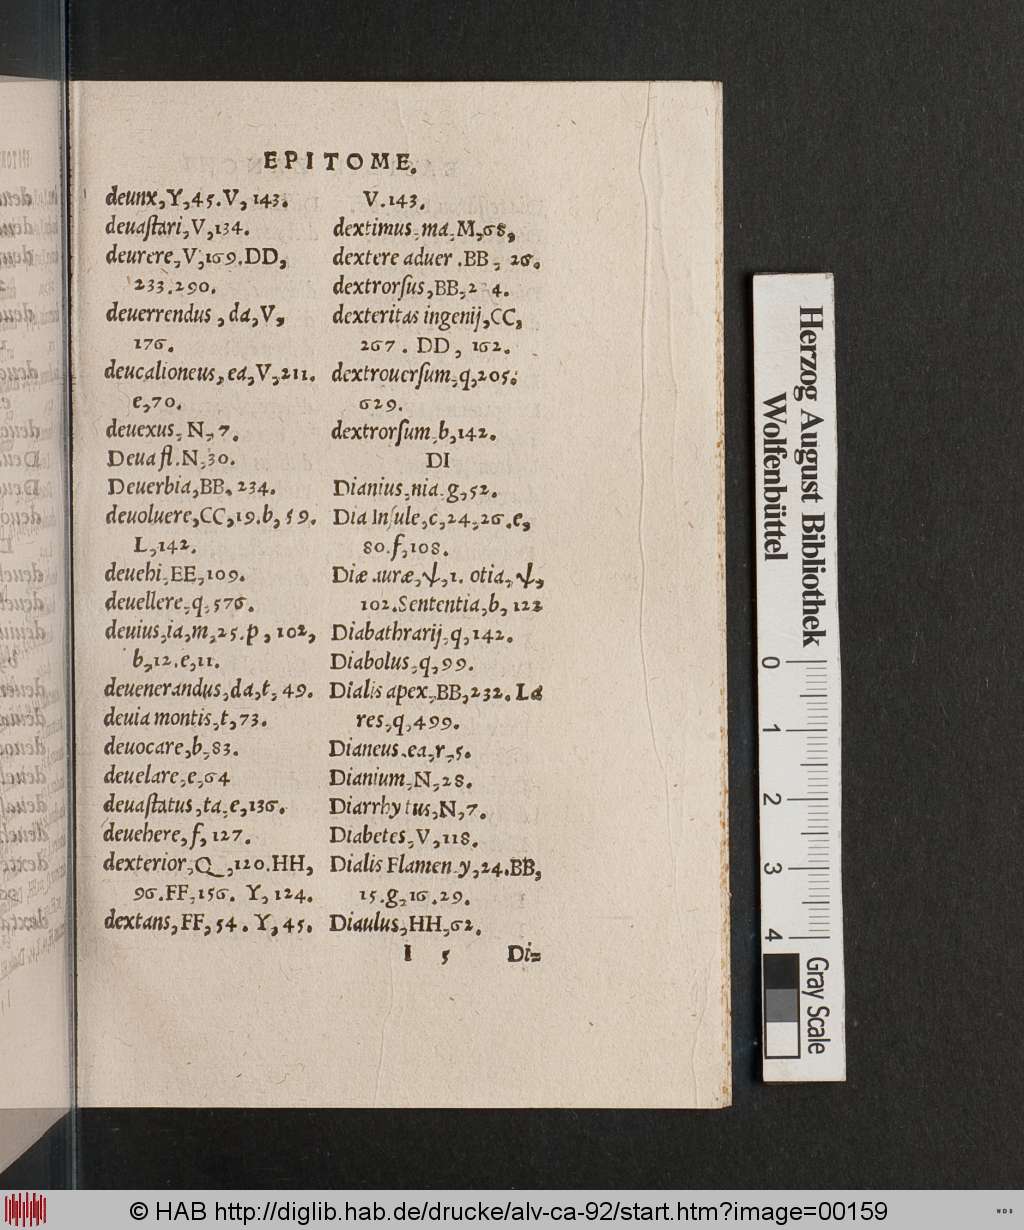 EPITOME.
deunx, Y, 45. V, 143.
deuaſtari, V, 134.
deurere, V, 169. DD,
233. 290.
deuerrendus, da, V,
176.
deucalioneus, ea, V, 211.
e, 70.
deuexus, N, 7.
Deuaſt. N, 30.
Deuerbia, BB, 234.
deuoluere, CC, 19. b, 59.
L, 142.
deuehi, EE, 109.
deuellere, q, 576.
deuius, ia, m, 25. p, 102,
b, 12. e, 11.
deuenerandus, da, t, 49.
deuia montis, t, 73.
deuocare, b, 83.
deuelare, e, 64
deuaſtatus, ta, e, 136.
deuehere, f, 127.
dexterior, Q, 120. HH,
96. FF, 156. Y, 124.
dextans, FF, 54. Y, 45.
V. 143.
dextimus, ma, M, 68,
dextere aduer. BB, 26.
dextrorſus, BB, 2 4.
dexteritas ingenij, CC,
267. DD, 162.
dextrouerſum, q, 205.
629.
dextrorſum, b, 142.
DI
Dianius, nia. g, 52.
Dia Inſule, c, 24, 26. e,
80. f, 108.
Diæ auræ, ψ, 1. otia, ψ,
102. Sententia, b, 122
Diabathrarij, q, 142.
Diabolus, q, 99.
Dialis apex, BB, 232. La
res, q, 499.
Dianeus. ea, r, 5.
Dianium, N, 28.
Diarrhytus, N, 7.
Diabetes, V, 118.
Dialis Flamen. y, 24. BB,
15. g, 16. 29.
Diaulus, HH, 62.
I 5 Di=
Herzog August Bibliothek
Wolfenbüttel
0 1 2 3 4
Gray Scale
© HAB http://diglib.hab.de/drucke/alv-ca-92/start.htm?image=00159